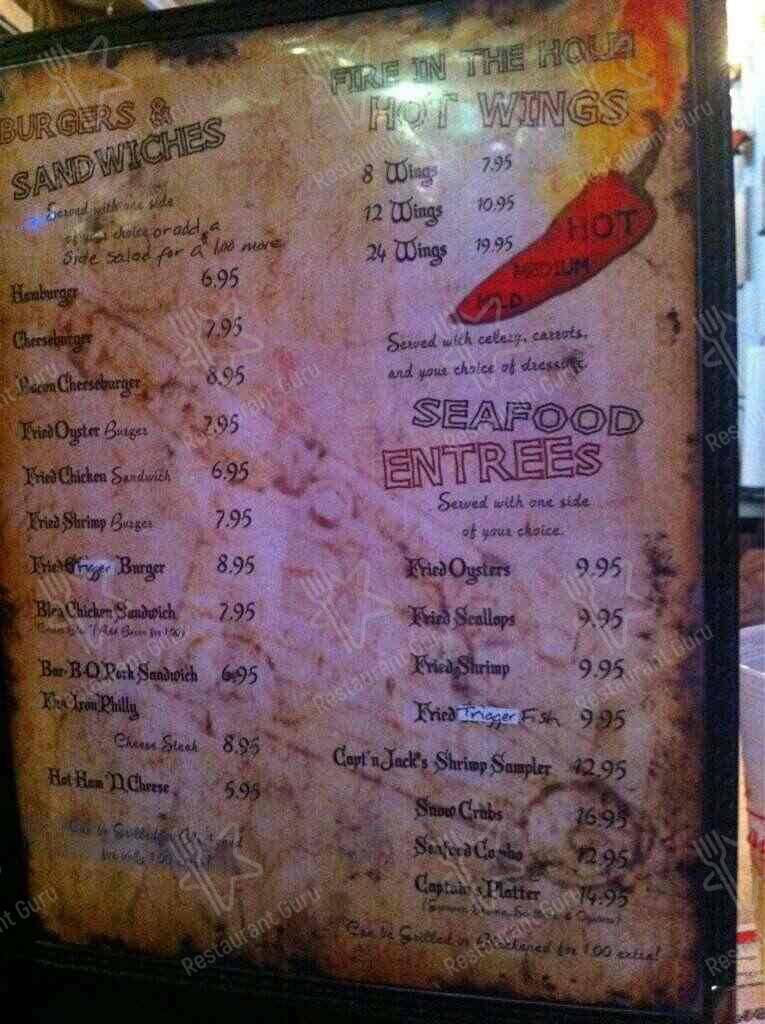 BURGERS &
SANDWICHES
Served with one side
of your choice or add a
Side salad for a 1.00 more.
Hamburger 6.95
Cheeseburger 7.95
Bacon Cheeseburger 8.95
Fried Oyster Burger 7.95
Fried Chicken Sandwich 6.95
Fried Shrimp Burger 7.95
Fried Trigger Burger 8.95
Bleu Chicken Sandwich 7.95
Bar-B-Q Pork Sandwich 6.95
Philly
Cheese Steak 8.95
Hot Ham 'N Cheese 5.95
FIRE IN THE HOLE
HOT WINGS
8 Wings 7.95
12 Wings 10.95
24 Wings 19.95
HOT
MEDIUM
MILD
Served with celery, carrots,
and your choice of dressing.
SEAFOOD
ENTREES
Served with one side
of your choice.
Fried Oysters 9.95
Fried Scallops 9.95
Fried Shrimp 9.95
Fried Trigger Fish 9.95
Capt'n Jack's Shrimp Sampler 12.95
Snow Crabs 16.95
Seafood Combo 12.95
Captain's Platter 14.95
Can be Grilled or Blackened for 1.00 extra!
Restaurant Guru